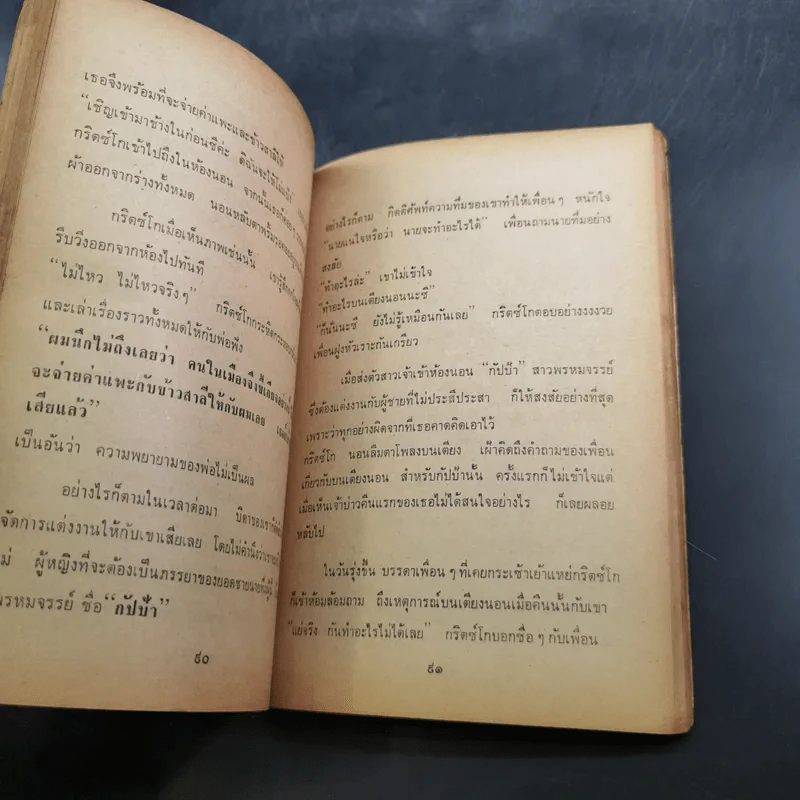 เธอจึงพร้อมที่จะจ่ายค่าแพะและข้าวสาลีให้
“เชิญเข้ามาข้างในก่อนซีค่ะ ดิฉันจะให้
กริตซ์โกเข้าไปถึงในห้องนอน จากนั้นเธอก็
ผ้าออกจากร่างทั้งหมด นอนหลับตาพริ้ม
กริตซ์โกเมื่อเห็นภาพเช่นนั้น เขารู้สึก
รีบวิ่งออกจากห้องไปทันที
“ไม่ไหว ไม่ไหวจริงๆ” กริตซ์โก
และเล่าเรื่องราวทั้งหมดให้กับพ่อฟัง
“ผมนึกไม่ถึงเลยว่า คนในเมืองจึงขี้เหนียว
จะจ่ายค่าแพะกับข้าวสาลีให้กับผมเลย
เสียแล้ว”
เป็นอันว่า ความพยายามของพ่อไม่เป็นผล
อย่างไรก็ตามในเวลาต่อมา บิดาของเขาก็
จัดการแต่งงานให้กับเขาเสียเลย โดยไม่คำนึงว่า
ผู้หญิงที่จะต้องเป็นภรรยาของยอดชาย
พรหมจรรย์ ชื่อ “กัปป้า”
๙๐
อย่างไรก็ตาม กิตติศัพท์ความทึ่มของเขาทำให้เพื่อนๆ หนักใจ
“นายแน่ใจหรือว่า นายจะทำอะไรได้” เพื่อนถามนายทึ่มอย่าง
สงสัย
“ทำอะไรล่ะ” เขาไม่เข้าใจ
“ทำอะไรบนเตียงนอนนะซี”
“กันนี่นะซี ยังไม่รู้เหมือนกันเลย” กริตซ์โกตอบอย่างงงงวย
เพื่อนฝูงหัวเราะกันเกรียว
เมื่อส่งตัวสาวเจ้าเข้าห้องนอน “กัปป้า” สาวพรหมจรรย์
ซึ่งต้องแต่งงานกับผู้ชายที่ไม่ประสีประสา ก็ให้สงสัยอย่างที่สุด
เพราะว่าทุกอย่างผิดจากที่เธอคาดคิดเอาไว้
กริตซ์โก นอนลืมตาโพลงบนเตียง เฝ้าคิดถึงคำถามของเพื่อน
เกี่ยวกับบนเตียงนอน สำหรับกัปป้านั้น ครั้งแรกก็ไม่เข้าใจแต่
เมื่อเห็นเจ้าบ่าวคืนแรกของเธอไม่ได้สนใจอย่างไร ก็เลยผลอย
หลับไป
ในวันรุ่งขึ้น บรรดาเพื่อนๆ ที่เคยกระเซ้าเย้าแหย่กริตซ์โก
ก็เข้าห้อมล้อมถาม ถึงเหตุการณ์บนเตียงนอนเมื่อคืนนั้นกับเขา
“แย่จริง กันทำอะไรไม่ได้เลย” กริตซ์โกบอกซื่อๆ กับเพื่อน
๙๑